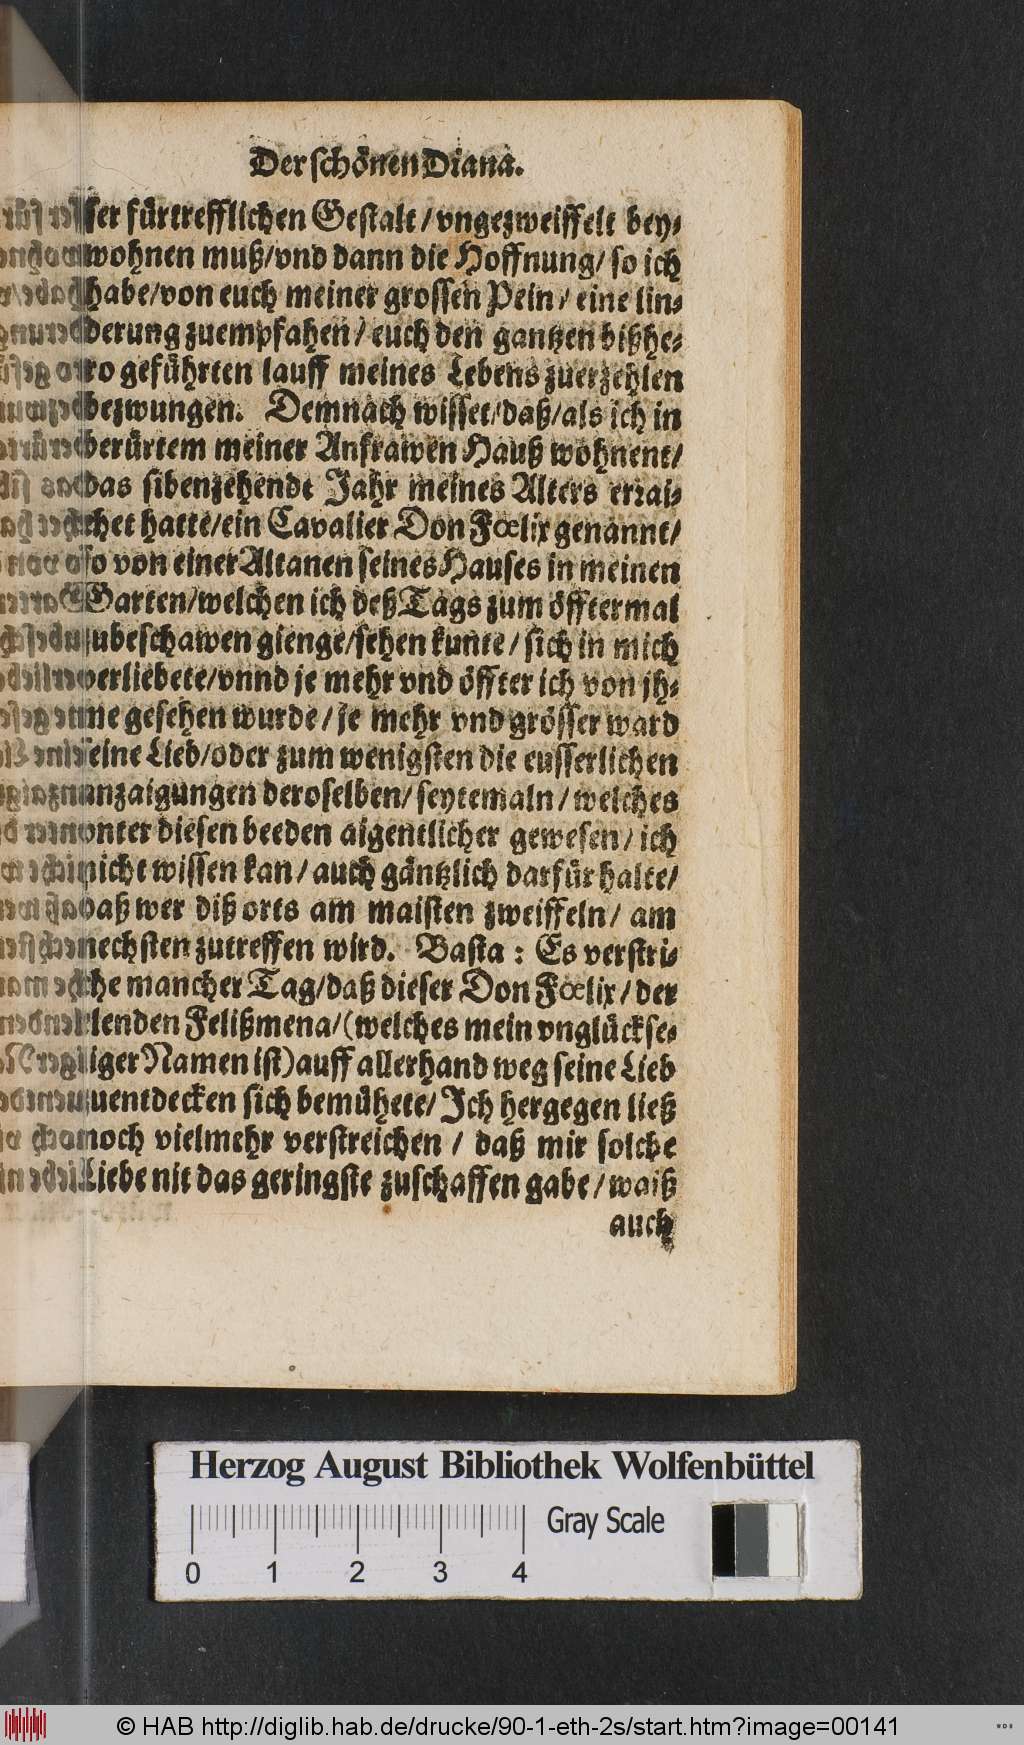 Der schönen Diana.
ser fürtrefflichen Gestalt / vngezweiffelt bey-
wohnen muß/vnd dann die Hoffnung/ so ich
habe/von euch meiner grossen Pein / eine lin-
derung zuempfahen / euch den gantzen bißhe-
ro geführten lauff meines Lebens zuerzehlen
bezwungen. Demnach wisset/daß/als ich in
berürtem meiner Anfrawen Hauß wohnent/
das sibenzehendt Jahr meines Alters errai-
chet hatte/ein Cavalier Don Fœlix genannt/
so von einer Altanen seines Hauses in meinen
Garten/welchen ich deß Tags zum öfftermal
zubeschawen gienge/sehen kunte / sich in mich
verliebete/vnnd je mehr vnd öffter ich von jh-
me gesehen wurde / je mehr vnd grösser ward
seine Lieb/oder zum wenigsten die eusserlichen
anzaigungen deroselben/ seytemaln / welches
vnter diesen beeden aigentlicher gewesen / ich
nicht wissen kan / auch gäntzlich darfür halte/
daß wer diß orts am maisten zweiffeln / am
nechsten zutreffen wird. Basta : Es verstri-
che mancher Tag/daß dieser Don Fœlix / der
elenden Felißmena/(welches mein vnglückse-
liger Namen ist) auff allerhand weg seine Lieb
zuentdecken sich bemühete/ Ich hergegen ließ
noch vielmehr verstreichen / daß mir solche
Liebe nit das geringste zuschaffen gabe / waiß
auch
Herzog August Bibliothek Wolfenbüttel
Gray Scale
0 1 2 3 4
© HAB http://diglib.hab.de/drucke/90-1-eth-2s/start.htm?image=00141